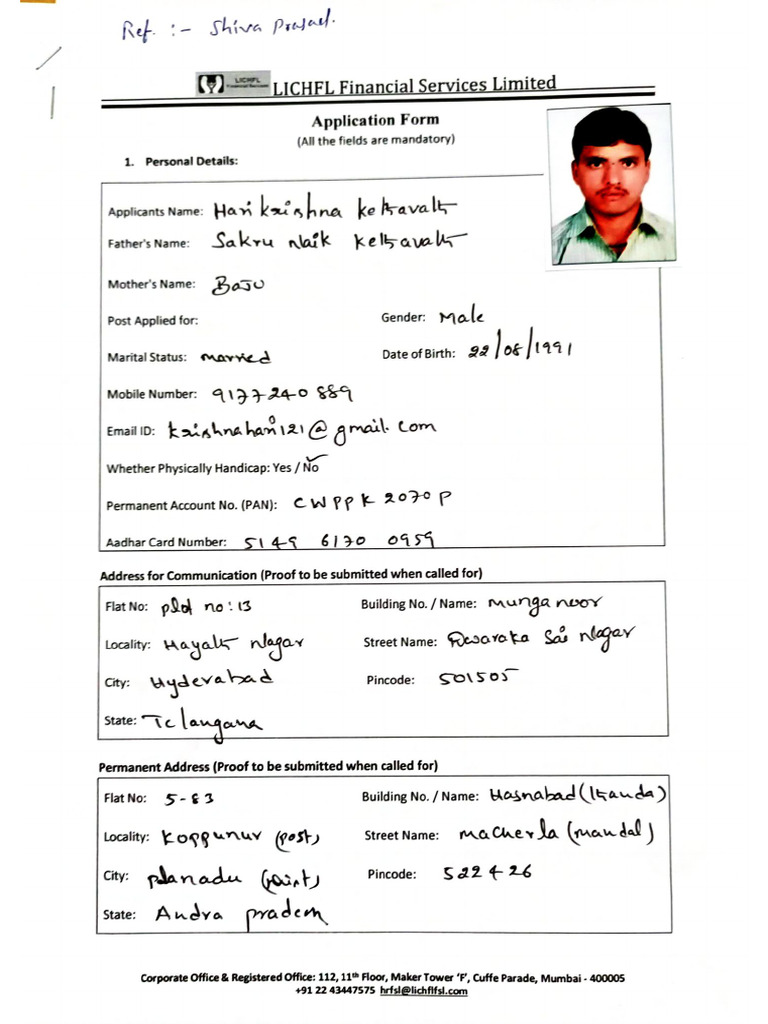 Ref. :- Shiva Prasad.
LICHFL
Financial Services
LICHFL Financial Services Limited
Application Form
(All the fields are mandatory)
1. Personal Details:
Applicants Name: Harikrishna Kethavath
Father's Name: Sakru Naik Kethavath
Mother's Name: Baju
Post Applied for: Gender: Male
Marital Status: Married Date of Birth: 22/08/1991
Mobile Number: 9177240889
Email ID: krishnahari121@gmail.com
Whether Physically Handicap: Yes / No
Permanent Account No. (PAN): CWPPK2070P
Aadhar Card Number: 5149 6170 0959
Address for Communication (Proof to be submitted when called for)
Flat No: plot no: 13 Building No. / Name: Munganoor
Locality: Hayath Nagar Street Name: Dwaraka Sai Nagar
City: Hyderabad Pincode: 501505
State: Telangana
Permanent Address (Proof to be submitted when called for)
Flat No: 5-83 Building No. / Name: Hasnabad (Thanda)
Locality: Koppunur (post) Street Name: Macherla (mandal)
City: Pianadu Pincode: 522426
State: Andra pradesh
Corporate Office & Registered Office: 112, 11th Floor, Maker Tower 'F', Cuffe Parade, Mumbai - 400005
+91 22 43447575 hrfsl@lichflfsl.com